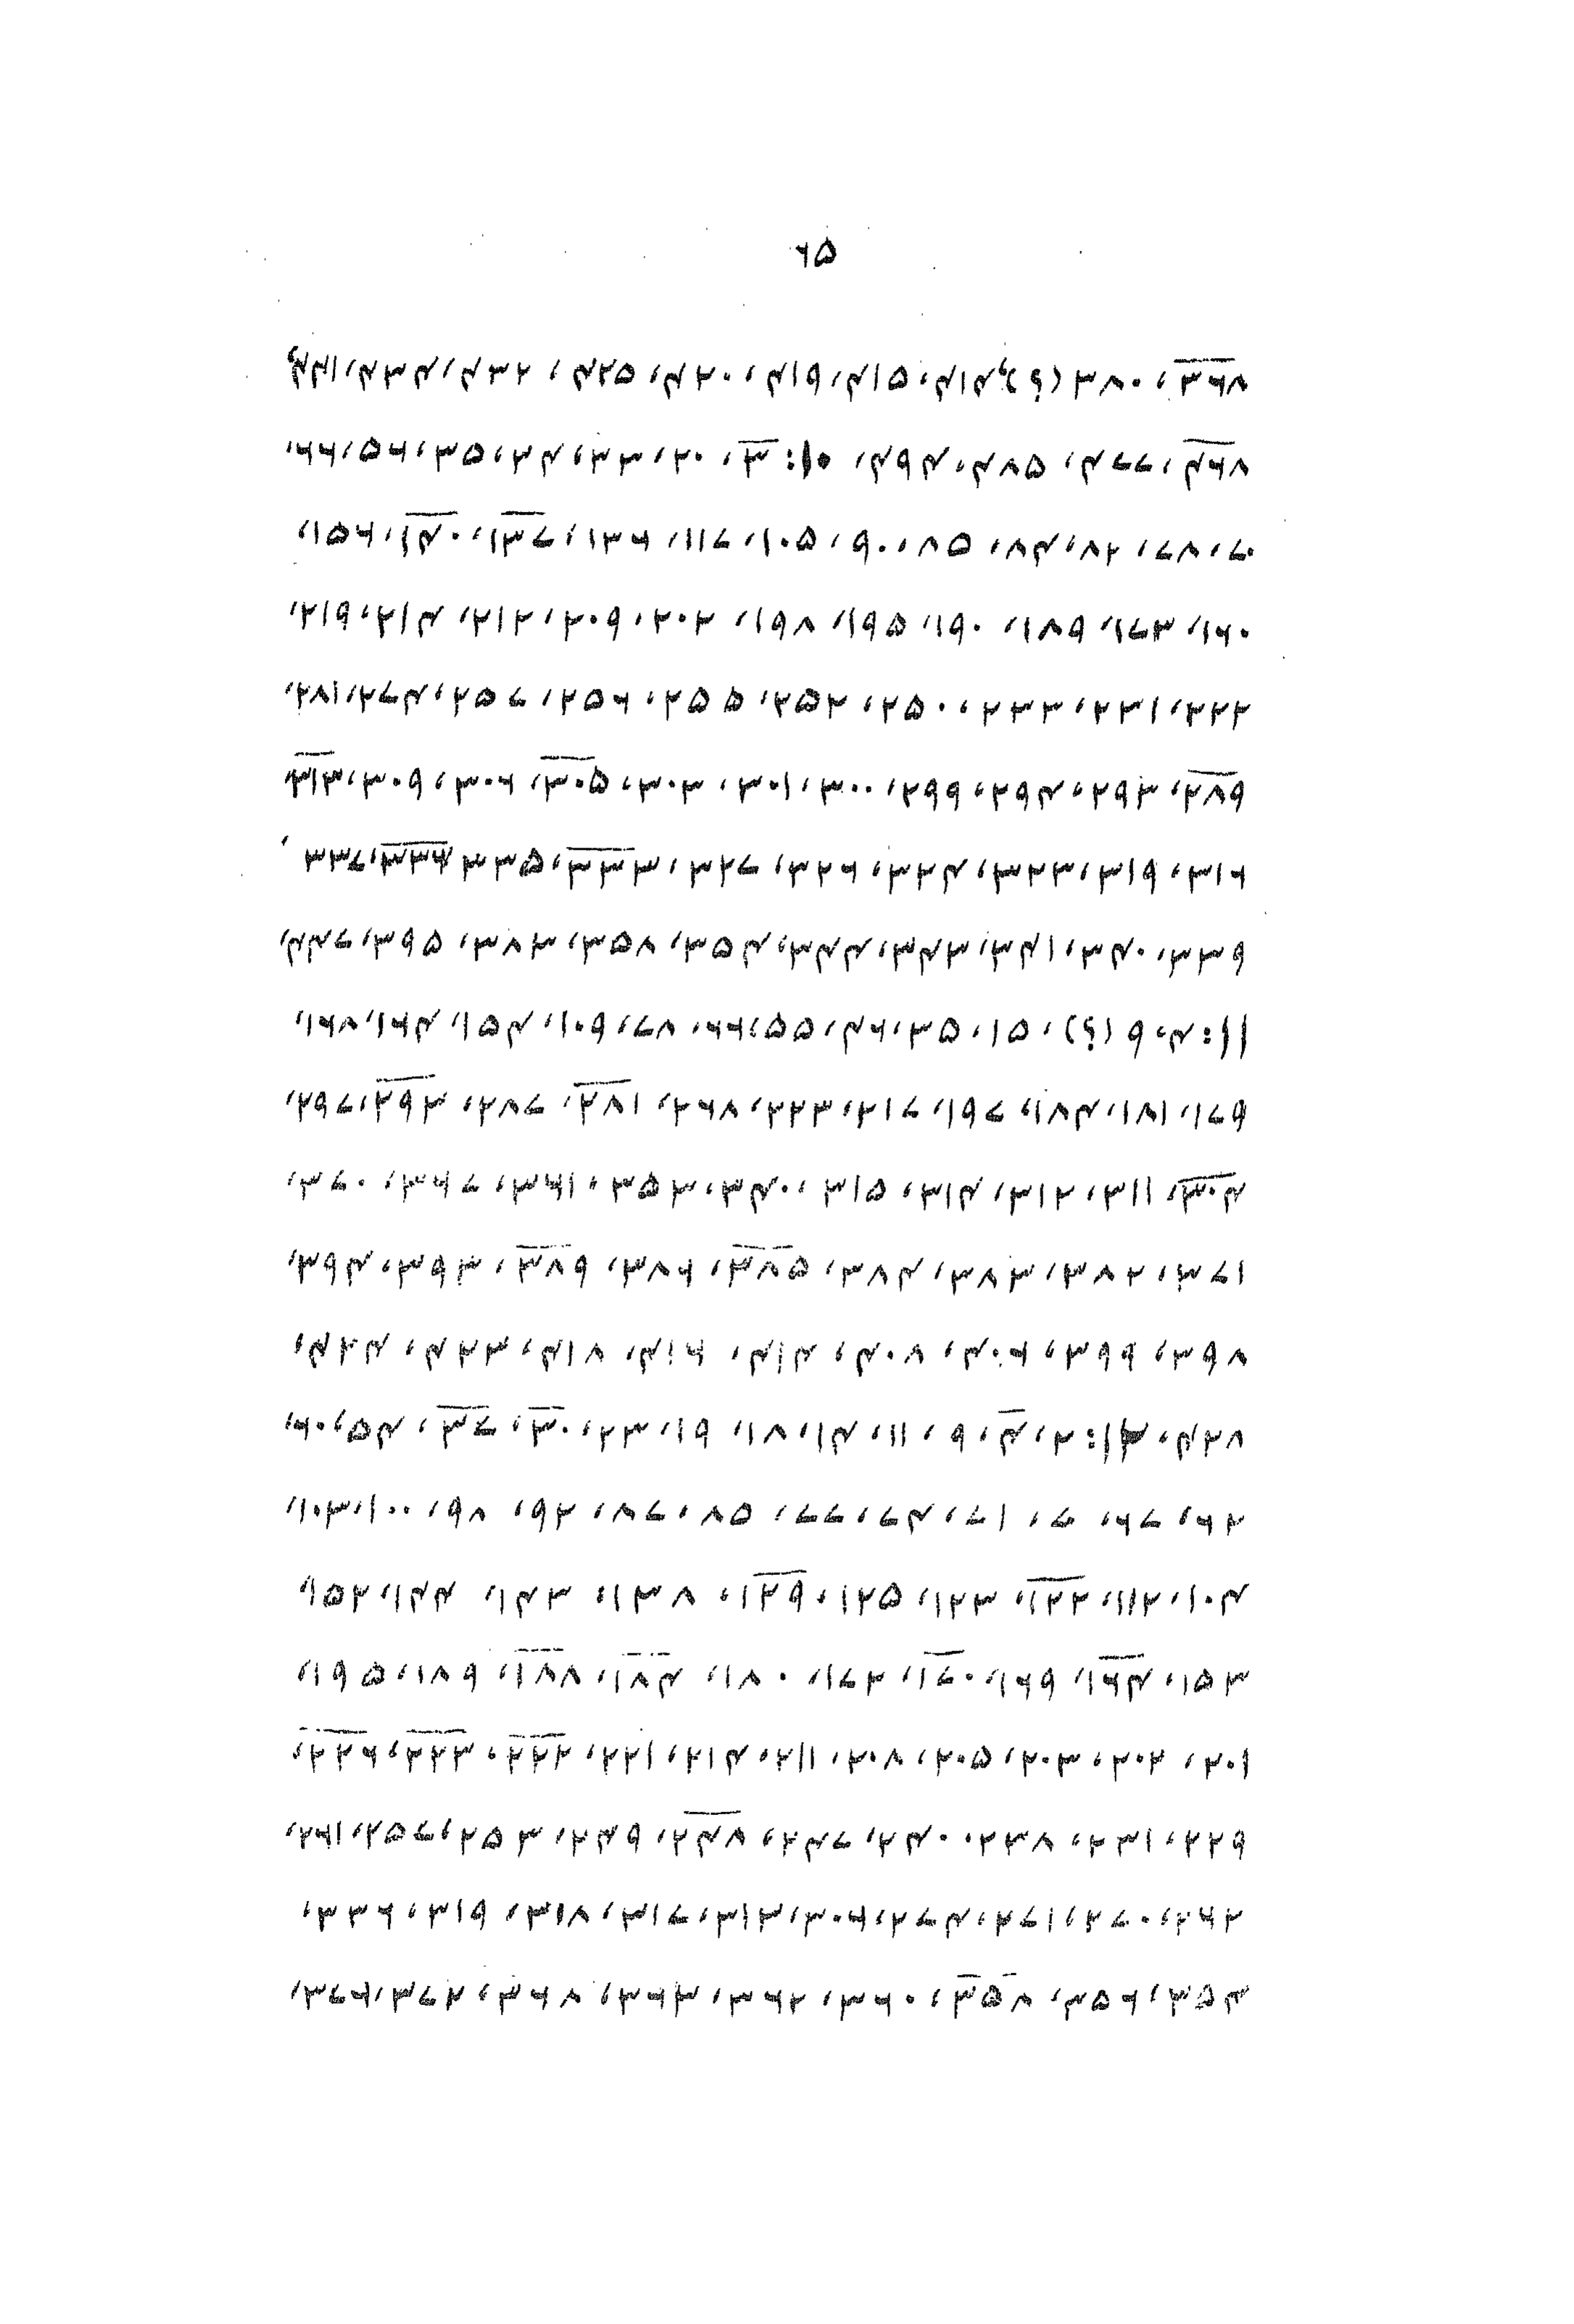 ۶۵
۳۶۸، ۳۸۰ (؟)، ۴۱۴، ۴۱۵، ۴۱۹، ۴۲۰، ۴۲۵، ۴۳۲، ۴۳۴، ۴۴۱،
۴۶۸، ۴۷۷، ۴۸۵، ۴۹۴، ۱۰: ۳، ۲۰، ۳۳، ۳۴، ۳۵، ۶۵، ۶۶،
۷۰، ۷۸، ۸۲، ۸۴، ۸۵، ۹۰، ۱۰۵، ۱۱۷، ۱۳۶، ۱۳۷، ۱۴۰، ۱۵۶،
۱۶۰، ۱۷۳، ۱۸۹، ۱۹۰، ۱۹۵، ۱۹۸، ۲۰۲، ۲۰۹، ۲۱۲، ۲۱۴، ۲۱۹،
۲۲۲، ۲۳۱، ۲۳۳، ۲۵۰، ۲۵۲، ۲۵۵، ۲۵۶، ۲۵۷، ۲۷۴، ۲۸۱،
۲۸۹، ۲۹۳، ۲۹۴، ۲۹۹، ۳۰۰، ۳۰۱، ۳۰۳، ۳۰۵، ۳۰۶، ۳۰۹، ۳۱۳،
۳۱۶، ۳۱۹، ۳۲۳، ۳۲۴، ۳۲۶، ۳۲۷، ۳۳۳، ۳۳۵، ۳۳۶، ۳۳۷،
۳۳۹، ۳۴۰، ۳۴۱، ۳۴۳، ۳۴۴، ۳۵۴، ۳۵۸، ۳۸۳، ۳۹۵، ۴۴۷،
۱۱: ۴، ۹ (؟)، ۱۵، ۳۵، ۴۶، ۵۵، ۶۶، ۷۸، ۱۰۹، ۱۵۴، ۱۶۴، ۱۶۸،
۱۷۹، ۱۸۱، ۱۸۴، ۱۹۷، ۲۱۷، ۲۲۳، ۲۶۸، ۲۸۱، ۲۸۷، ۲۹۳، ۲۹۷،
۳۰۴، ۳۱۱، ۳۱۲، ۳۱۴، ۳۱۵، ۳۴۰، ۳۵۳، ۳۶۱، ۳۶۷، ۳۷۰،
۳۷۱، ۳۸۲، ۳۸۳، ۳۸۴، ۳۸۵، ۳۸۶، ۳۸۹، ۳۹۳، ۳۹۴،
۳۹۸، ۳۹۹، ۴۰۶، ۴۰۸، ۴۱۴، ۴۱۶، ۴۱۸، ۴۲۳، ۴۲۴،
۴۲۸، ۱۲: ۲، ۴، ۹، ۱۱، ۱۴، ۱۸، ۱۹، ۲۳، ۳۰، ۳۷، ۵۴، ۶۰،
۶۲، ۶۷، ۷، ۷۱، ۷۴، ۷۷، ۸۵، ۸۷، ۹۲، ۹۸، ۱۰۰، ۱۰۳،
۱۰۴، ۱۱۲، ۱۲۲، ۱۲۳، ۱۲۵، ۱۲۹، ۱۳۸، ۱۴۳، ۱۴۴، ۱۵۲،
۱۵۳، ۱۶۴، ۱۶۹، ۱۷۰، ۱۷۲، ۱۸۰، ۱۸۴، ۱۸۸، ۱۸۹، ۱۹۵،
۲۰۱، ۲۰۲، ۲۰۳، ۲۰۵، ۲۰۸، ۲۱۱، ۲۱۴، ۲۲۱، ۲۲۲، ۲۲۳، ۲۲۶،
۲۲۹، ۲۳۱، ۲۳۸، ۲۴۰، ۲۴۷، ۲۴۸، ۲۴۹، ۲۵۳، ۲۵۷، ۲۶۱،
۲۶۲، ۲۷۰، ۲۷۱، ۲۷۴، ۳۰۶، ۳۱۳، ۳۱۷، ۳۱۸، ۳۱۹، ۳۳۶،
۳۵۴، ۳۵۶، ۳۵۸، ۳۶۰، ۳۶۲، ۳۶۳، ۳۶۸، ۳۷۲، ۳۷۶،